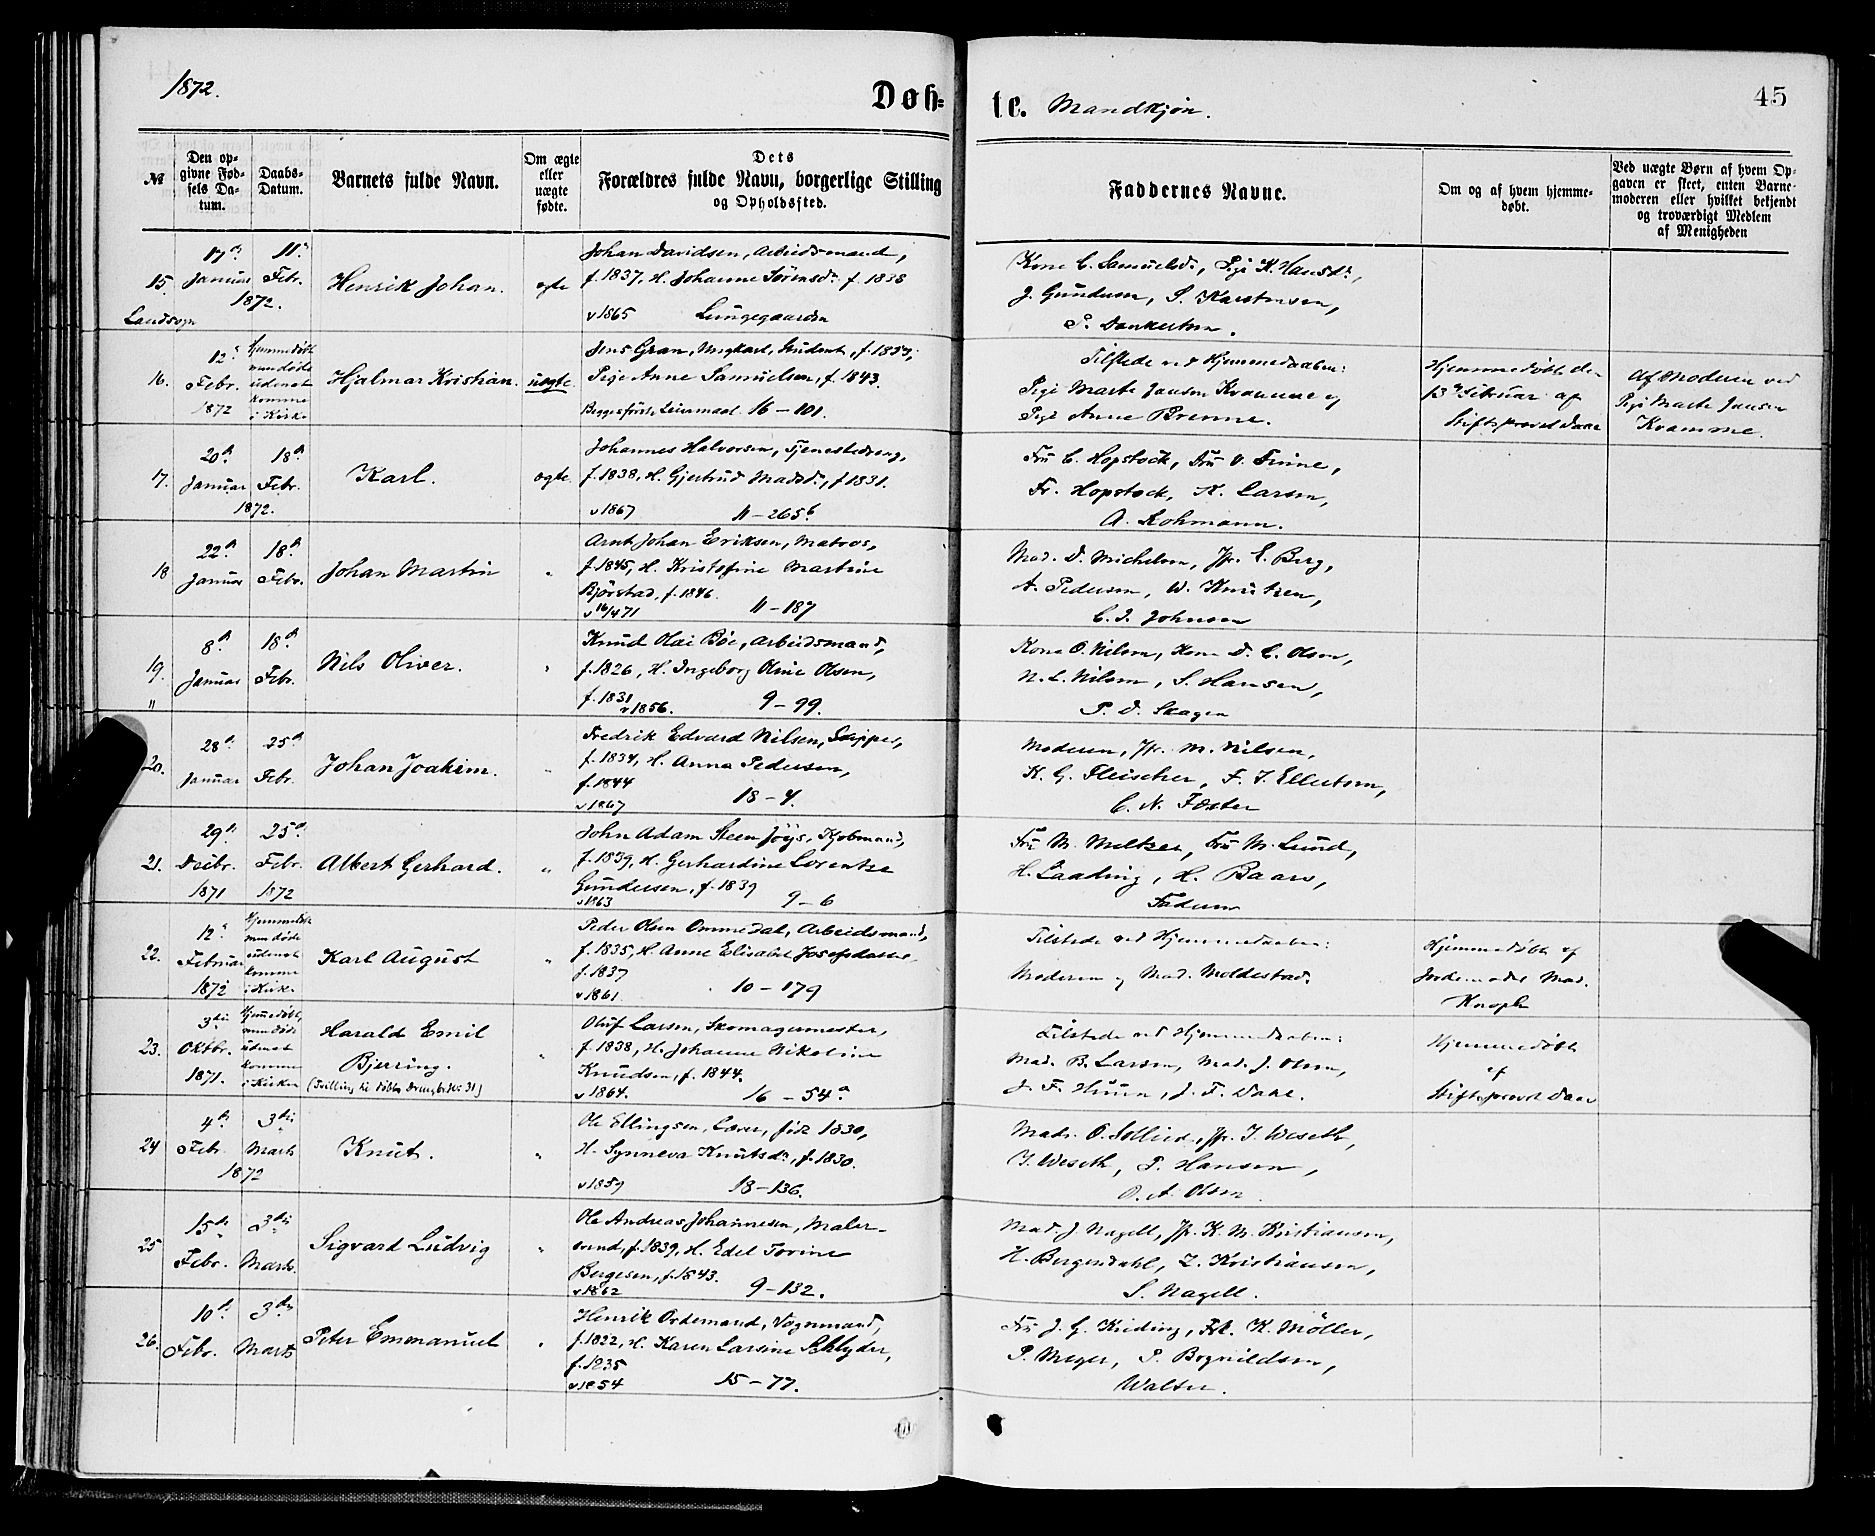 1872.
Døb=
te. Mandkjøn.
45
№
Den opgivne Fødsels Datum.
Daabs-Datum.
Barnets fulde Navn.
Om ægte eller uægte fødte.
Dets
Forældres fulde Navn, borgerlige Stilling
og Opholdssted.
Faddernes Navne.
Om og af hvem hjemmedøbt.
Ved uægte Børn af hvem Opgaven er skeet, enten Barnemoderen eller hvilket bekjendt og troværdigt Medlem af Menigheden
15. Landsogn
17de Januar
11te Febr.
1872.
Henrik Johan.
ægte
Johan Davidsen, Arbeidsmand,
f. 1837, H. Johanne Sørensdr. f. 1838
v 1865 Lungegaarden
Kone C. Samuelsdr., Pige K. Hansdr.,
J. Gundersen, S. Karstensen,
P. Dankertsen.
16.
12te Febr. 1872
Hjemmedøbt
men døde
uden at
komme
i Kirke
Hjalmar Kristian.
uægte.
Jens Gran, Ungkarl, Student, f. 1850,
Pige Anne Samuelsen, f. 1843.
Begges første Leiermaal 16 - 101.
Tilstede ved Hjemmedaaben:
Pige Marte Jansen Kvamme og
Pige Anne Brenne.
Hjemmedøbt den
13de Februar af
Stiftsprovst Daae
Af Moderen ved
Pige Marte Jansen
Kvamme.
17.
20de Januar
18de Febr.
1872.
Karl.
ægte.
Johannes Halvorsen, Tjenestedreng,
f. 1838, H. Gjertrud Madsdr., f 1831.
v 1867 11 - 265b
Fru C. Hopstock, Fru V. Finne,
Fr. Hopstock, K. Larsen,
A. Kohmann.
18
22de Januar
18de Febr.
Johan Martin
"
Arnt Johan Eriksen, Matros,
f 1845, H. Kristofine Martine
Bjørstad, f. 1846.
v 16/4 71 11 - 187
Mad. D. Michelsen, Jfr. E. Berg,
A. Pedersen, W. Knutzen,
C. J. Johnsen
19. "
8de Januar
18de Febr.
Nils Oliver.
"
Knud Olai Böe, Arbeidsmand,
f. 1826, H. Ingeborg Oline Olsen,
f. 1831
v 1856. 9 - 99.
Kone O. Nilsen, Kone D. C. Olsen,
N. L. Nilsen, S. Hansen,
P. D. Skagen
20.
28de Januar
25de Febr.
Johan Joakim.
"
Fredrik Edvard Nilsen, Sapper,
f. 1834, H. Anna Pedersen,
f. 1844
v 1867 18 - 4.
Moderen, Jfr. M. Nilsen,
K. G. Fleischer, F. J. Ellertsen,
C. N. Foster
21.
29de Decbr. 1871
25de Febr. 1872
Albert Gerhard.
"
John Adam Steen Jöÿs, Kjøbmand,
f. 1839, H. Gerhardine Lorentze
Gundersen, f. 1839
v 1863 9 - 6
Fru M. Meltzer, Fru M. Lund,
H. Laading, H. Baars,
Faderen
22.
12te Februar 1872
Hjemmedøbt
men døde
uden at
komme
i Kirke
Karl August
"
Peder Olsen Ommedal, Arbeidsmand,
f. 1835, H. Anne Elisabet Josefsdatter
f. 1837
v 1861 10 - 179
Tilstede ved Hjemmedaaben:
Moderen og Mad. Moldestad.
Hjemmedøbt af
Jordemoder Mad.
23.
3die Oktbr. 1871.
Hjemmedøbt,
men døde
uden at
komme
i Kirken
Harald Emil
Bjerring.
"
Oluf Larsen, Skomagermester,
f. 1838, H. Johanne Nikoline
Knudsen, f. 1844.
v 1864. 16 - 54a
Tilstede ved Hjemmedaaben:
Mad. B. Larsen, Mad. J. Olsen,
J. F. Huun, J. F. Daae.
Hjemmedøbt
af
Stiftsprovst Daae
24
4de Febr.
3die Marts
1872
Knut.
"
Ole Ellingsen, Lærer, født 1830,
H. Synneva Knutsdr., f. 1830.
v 1859 18 - 136.
Mad. O. Sollied, Jfr. J. Weseth,
J. Weseth, P. Hansen,
O. A. Olsen.
25
15de Febr.
3die Marts
Sigvard Ludvig
"
Ole Andreas Johannesen, Maler-
svend, f. 1839, H. Edel Torine
Bergesen, f. 1843.
v 1862 9 - 132.
Mad. J Nagell, Jfr. K. M. Kristiansen,
H. Bergendahl, Z. Kristiansen,
S. Nagell.
26.
10de Febr.
3die Marts
Peter Emmanuel
"
Henrik Ordemand, Vognmand,
f. 1822, H. Karen Larsine Schlyder,
f. 1835
v 1854 15 - 77.
Fru J. G. Kieding, Frk. K. Möller,
P. Meyer, P. Bognildsen,
Walter.